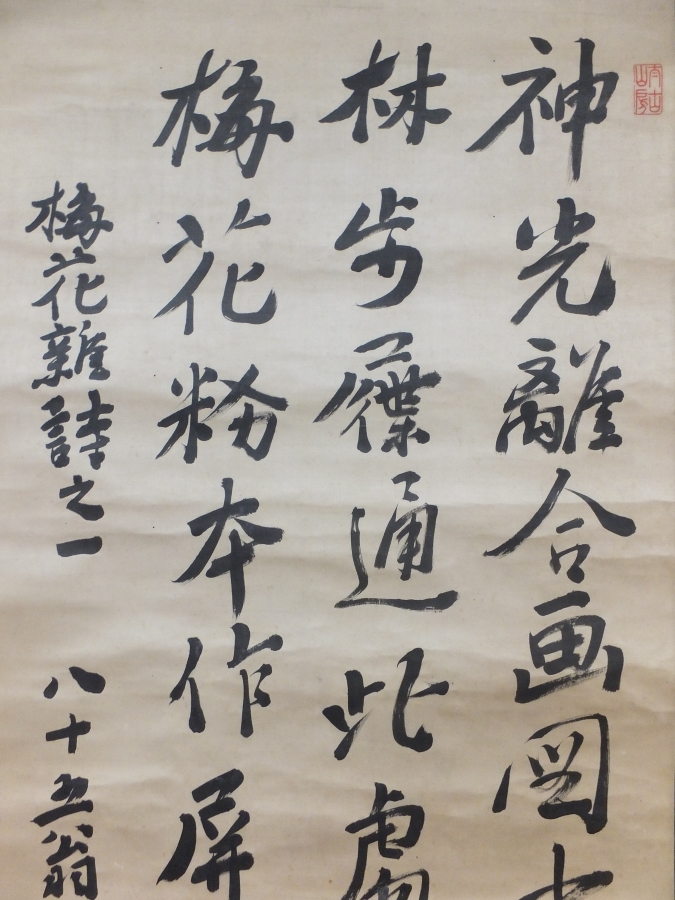 神光離合画図
林步屧通此處
梅花粉本作屏
梅花雜詩之一 八十五翁